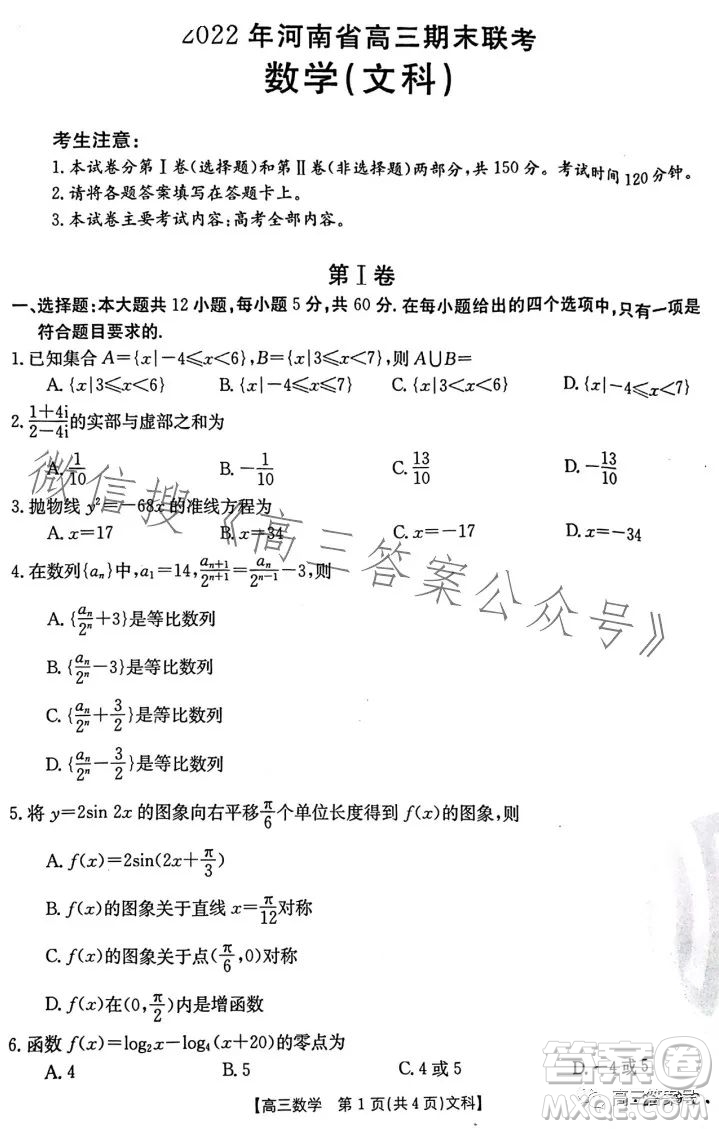 2022年河南省高三期末联考
数学(文科)
考生注意:
1.本试卷分第Ⅰ卷(选择题)和第Ⅱ卷(非选择题)两部分,共150分。考试时间120分钟。
2.请将各题答案填写在答题卡上。
3.本试卷主要考试内容:高考全部内容。
第Ⅰ卷
一、选择题:本大题共12小题,每小题5分,共60分.在每小题给出的四个选项中,只有一项是
符合题目要求的.
1.已知集合A={x|-4≤x<6},B={x|3≤x<7},则A∪B=
A.{x|3≤x<6} B.{x|6≤x<7} C.{x|-4≤x<6} D.{x|-4≤x<7}
2.(1+4i)/(2-4i)的实部与虚部之和为
A.1/10 B.-1/10 C.13/10 D.-13/10
3.抛物线y²=-68x的准线方程为
A.x=17 B.x=34 C.x=-17 D.x=-34
4.在数列{aₙ}中,a₁=14,aₙ₊₁/2ⁿ⁺¹=aₙ/2ⁿ⁻¹-3,则
A.{aₙ/2ⁿ+3}是等比数列
B.{aₙ/2ⁿ-3}是等比数列
C.{aₙ/2ⁿ+3/2}是等比数列
D.{aₙ/2ⁿ-3/2}是等比数列
5.将y=2sin 2x的图象向右平移π/6个单位长度得到f(x)的图象,则
A.f(x)=2sin(2x+π/3)
B.f(x)的图象关于直线x=π/12对称
C.f(x)的图象关于点(π/6,0)对称
D.f(x)在(0,π/2)内是增函数
6.函数f(x)=log₂x-log₄(x+20)的零点为
A.4 B.5 C.4或5 D.-4或5
【高三数学 第1页(共4页)文科】
微信搜《高三答案公众号》
答案卷
高三答案号
MXQE.COM